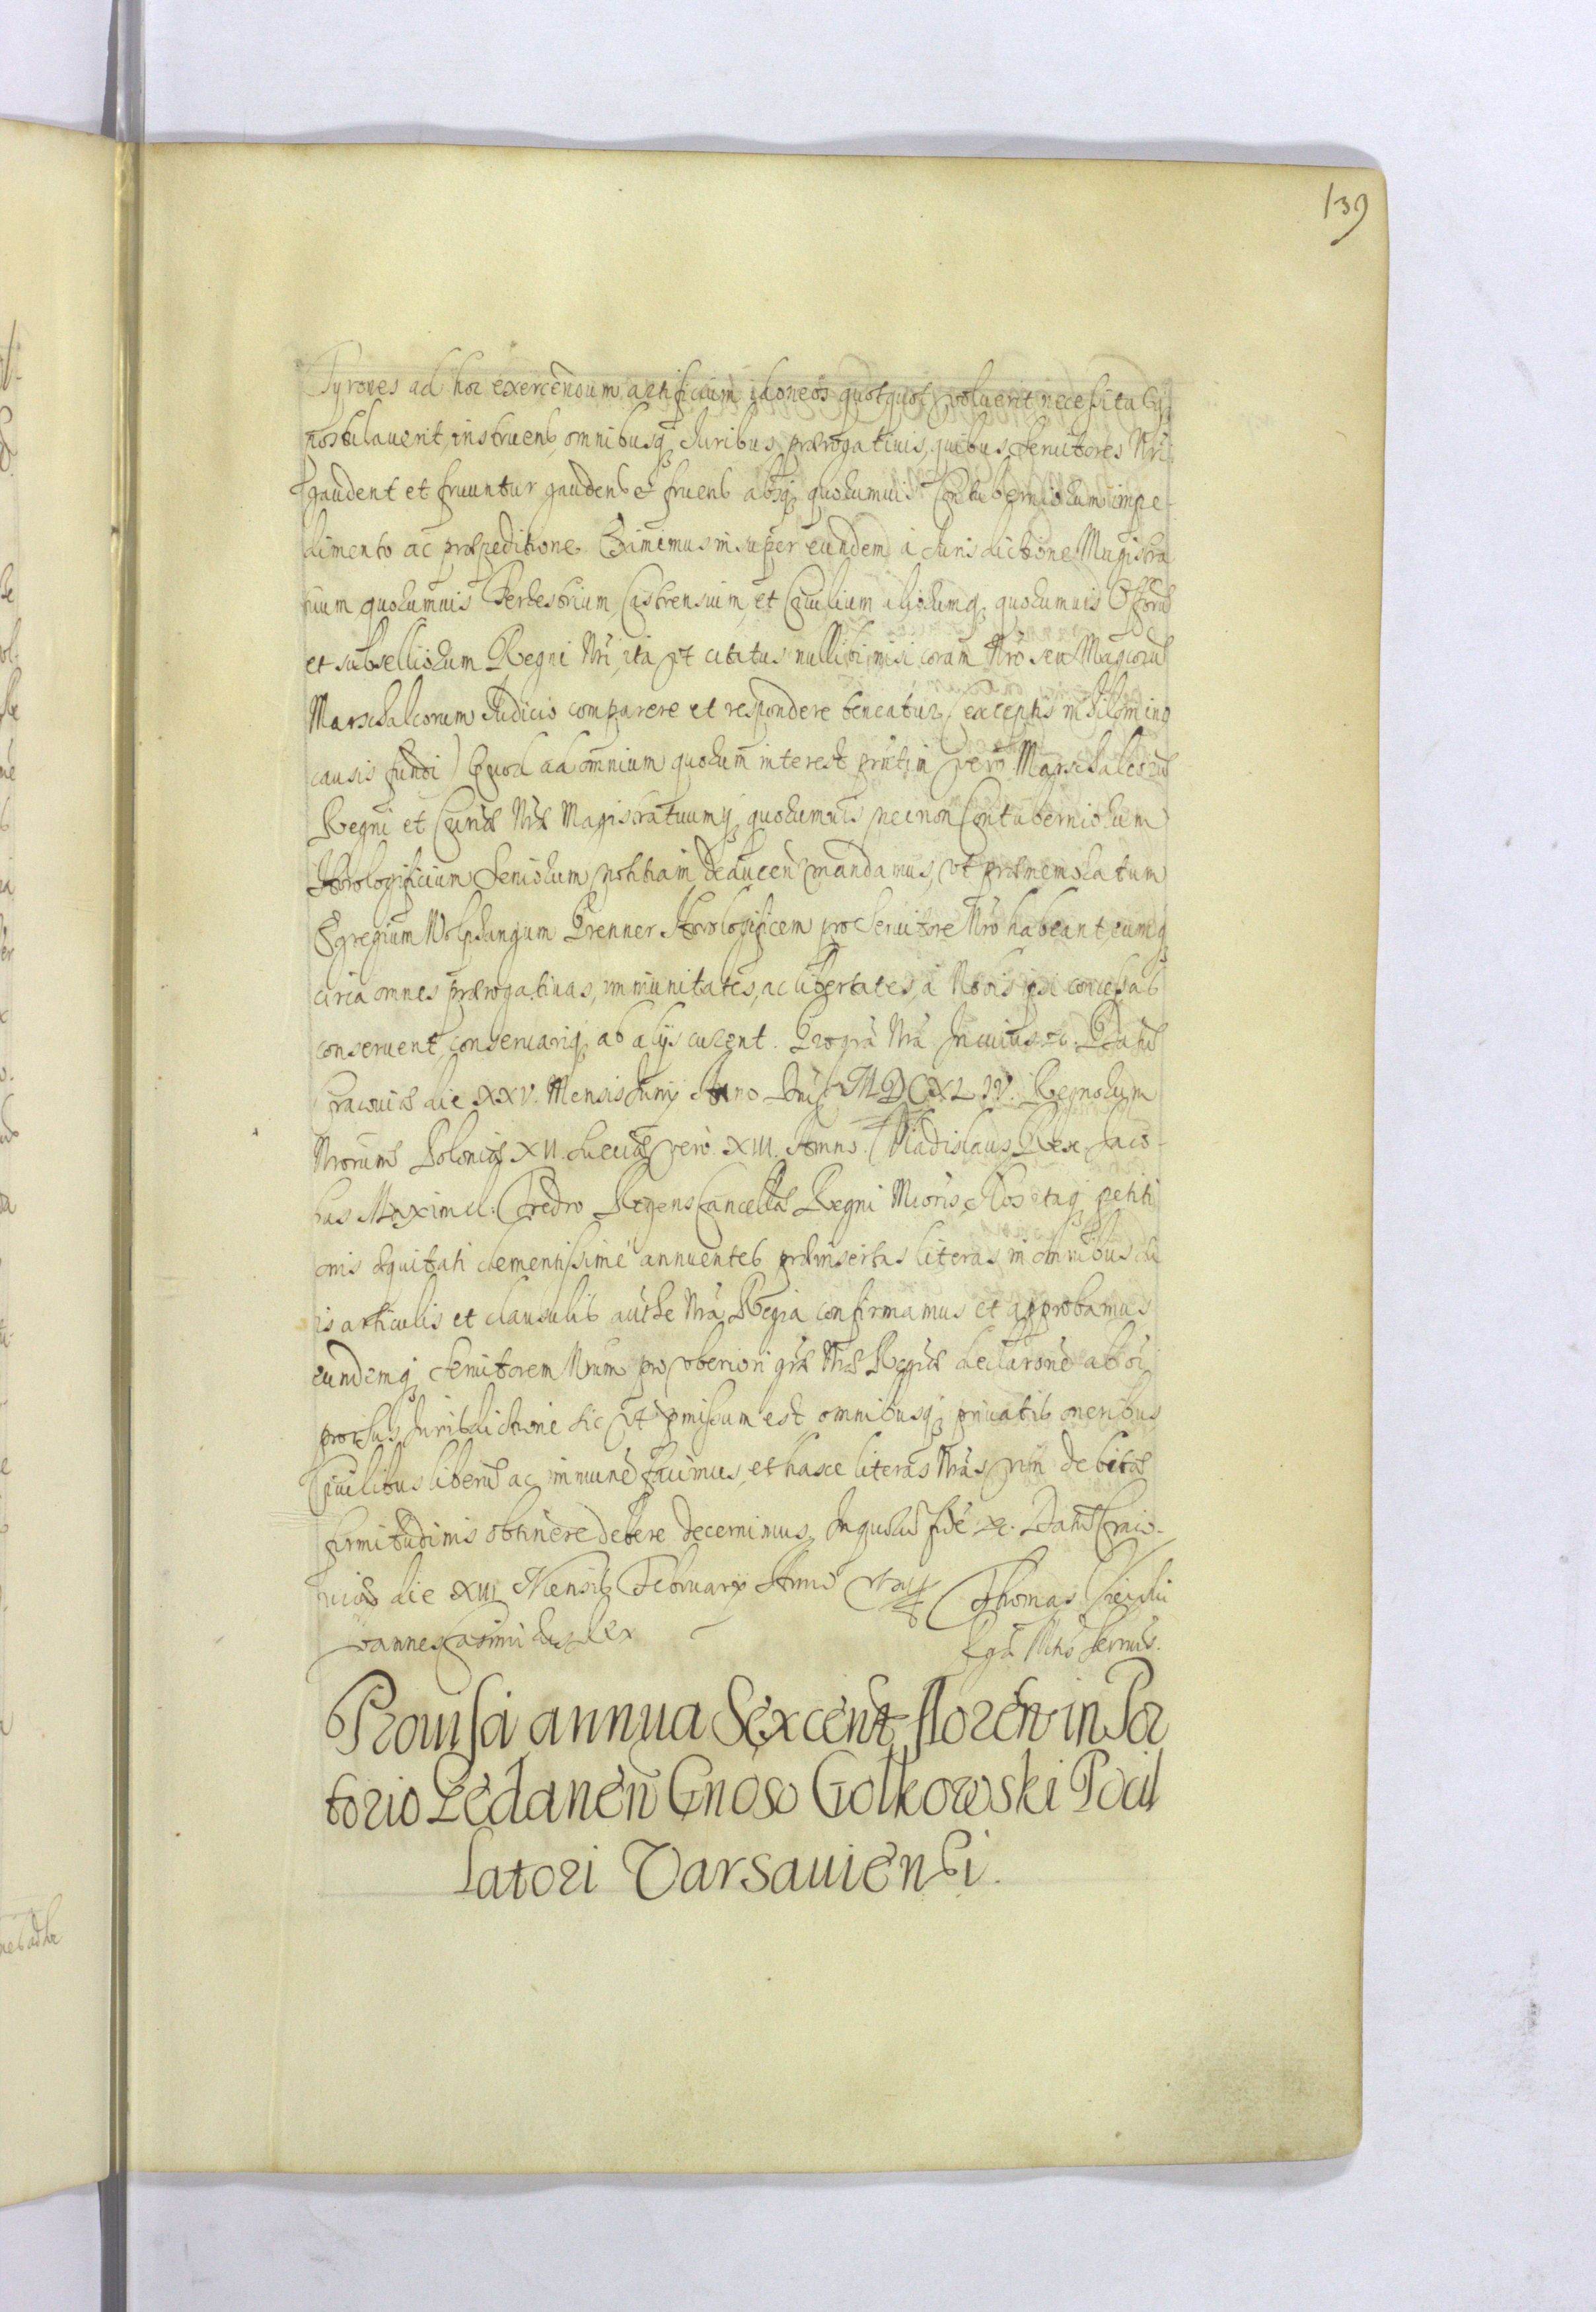 139
Tyrones ad hoc exercendum artificium idoneos quotquot voluerit necessitasq;
postulauerit, instruens, omnibusq; Juribus, prærogatiuis, quibus Seruitores Nri
gaudent et fruuntur gaudens et fruens absq; quorumuis Contuberniorum impe-
dimento ac præpeditione. Eximimus insuper eundem à Jurisdictione Magistra
tuum quorumuis Terrestrium, Castrensium, et Ciuilium aliorumq; quorumuis Offorū
et subselliorum Regni Nri, ita vt citatus nullibi, nisi coram Nro seu Magcorū
Marschalcorum Judicio comparere et respondere teneatur (exceptis nihilomino
causis fundi) Quod ad omnium quorum interest prūtim vero Marschalcorū
Regni et Curiæ Nræ Magistratuumq; quorumuis necnon Contuberniorum
Horologificium Seniorum notitiam deducen mandamus, vt prænemoratum
Egregium Wolphangum Brenner Horologificem pro Seruitore Nro habeant, eumq;
circa omnes prærogatiuas, immunitates, ac libertates, à Nobis ipsi concessas
conseruent, conseruariq; ab alijs curent. Pro gra Nra In cuius &. Datū
Cracouiæ die XXV. Mensis Junij Anno Dni MDCXLIV. Regnorum
Nrorum Poloniæ XII. Sueciæ vero XIII. Anno. Vladislaus Rex Jaco-
bus Maximil: Fredro Regens Cancellæ Regni Mioris, Nos itaq; petiti
onis æquitati clementissime annuentes præinsertas literas in omnibus eā
is articulis et clausulis authe Nrā Regia confirmamus et approbamus
eundemq; Seruitorem Nrum pro vberiori grā Næ Regiæ declarone ab oī
prorsus Jurisdictione sic vt pmissum est omnibusq; priuatis oneribus
Ciuilibus liberū ac immunē facimus, et hasce literas Nrās vim debitæ
firmitudinis obtinere debere decernimus. In quorū fidē &. Datū Craco-
uiæ die XIII Mensis February Anno
Thomas
Joannes Casimirus Rex
Rgā Mtis Secrius.
Prouisa annua Sexcent floren in Por
torio Gedanen Gnoso Golkowski Pocil
latori Varsauiensi.